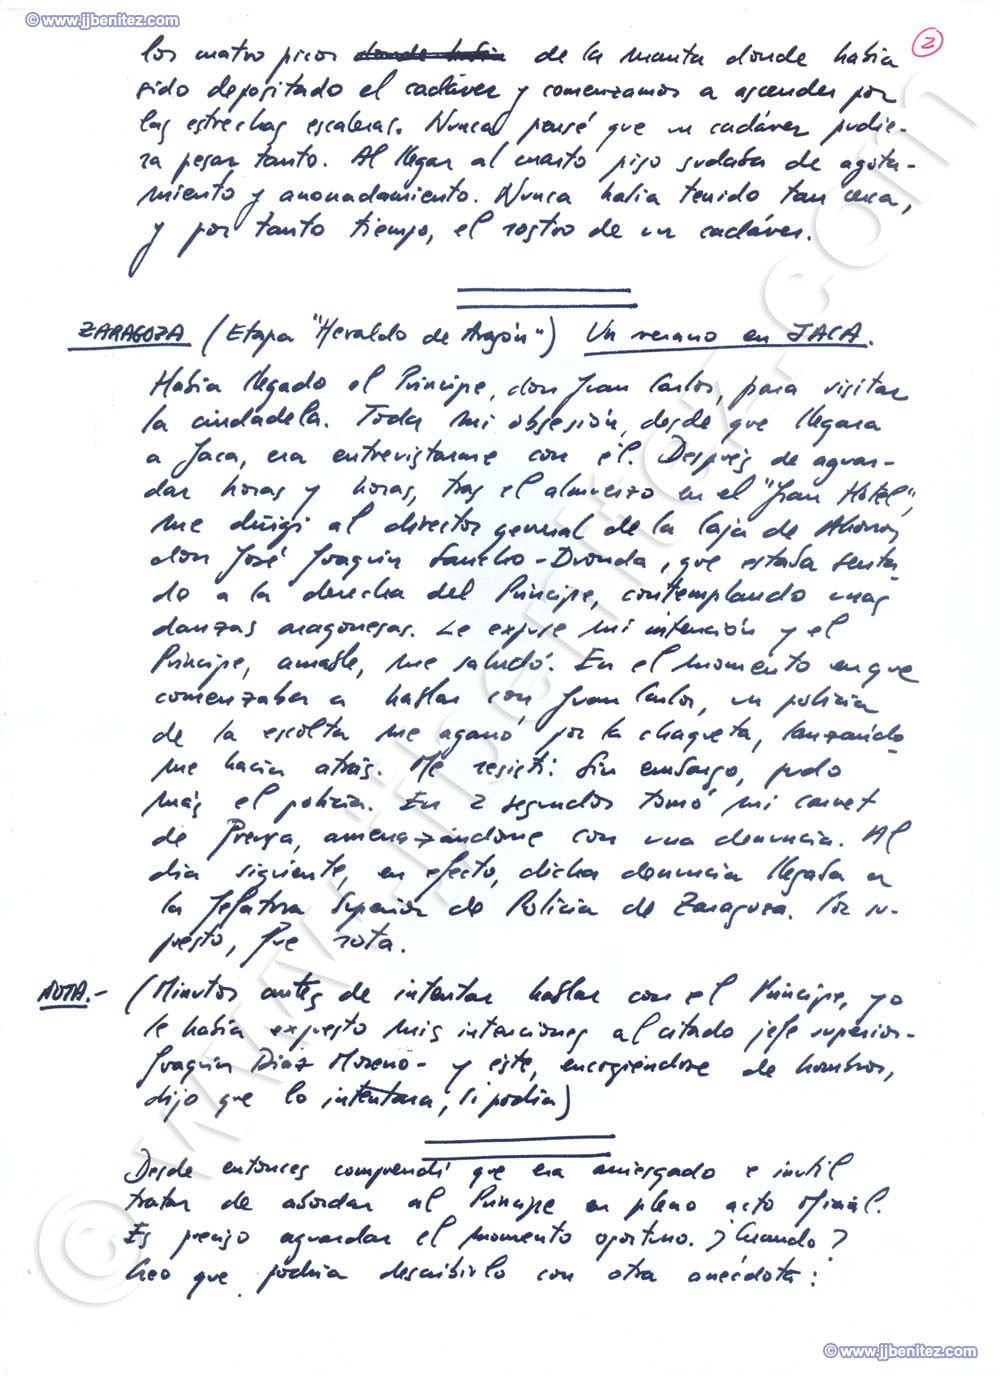 © www.jjbenitez.com
2
los cuatro picos donde había de la manta donde había
sido depositado el cadáver y comenzamos a ascender por
las estrechas escaleras. Nunca pensé que un cadáver pudie-
ra pesar tanto. Al llegar al cuarto piso sudaba de agota-
miento y anonadamiento. Nunca había tenido tan cerca,
y por tanto tiempo, el rostro de un cadáver.
ZARAGOZA (Etapa "Heraldo de Aragón") Un verano en JACA.
Había llegado el Príncipe, don Juan Carlos, para visitar
la ciudadela. Toda mi obsesión, desde que llegara
a Jaca, era entrevistarme con él. Después de aguar-
dar horas y horas, tras el almuerzo en el "Gran Hotel",
me dirigí al director general de la Caja de Ahorros,
don José Joaquín Sancho-Dronda, que estaba senta-
do a la derecha del Príncipe, contemplando unas
danzas aragonesas. Le expuse mi intención y el
Príncipe, amable, me saludó. En el momento en que
comenzaba a hablar con Juan Carlos, un policía
de la escolta me agarró por la chaqueta, lanzándo-
me hacia atrás. Me resistí. Sin embargo, pudo
más el policía. En 2 segundos tomó mi carnet
de Prensa, amenazándome con una denuncia. Al
día siguiente, en efecto, dicha denuncia llegaba a
la Jefatura Superior de Policía de Zaragoza. Por su-
puesto, fue rota.
NOTA.- (Minutos antes de intentar hablar con el Príncipe, yo
le había expuesto mis intenciones al citado jefe superior-
Joaquín Díaz Moreno- y éste, encogiéndose de hombros,
dijo que lo intentara, si podía)
Desde entonces comprendí que era arriesgado e inútil
tratar de abordar al Príncipe en pleno acto oficial.
Es preciso aguardar el momento oportuno. ¿Cuándo?
Creo que podría describirlo con otra anécdota:
© www.jjbenitez.com
© www.jjbenitez.com